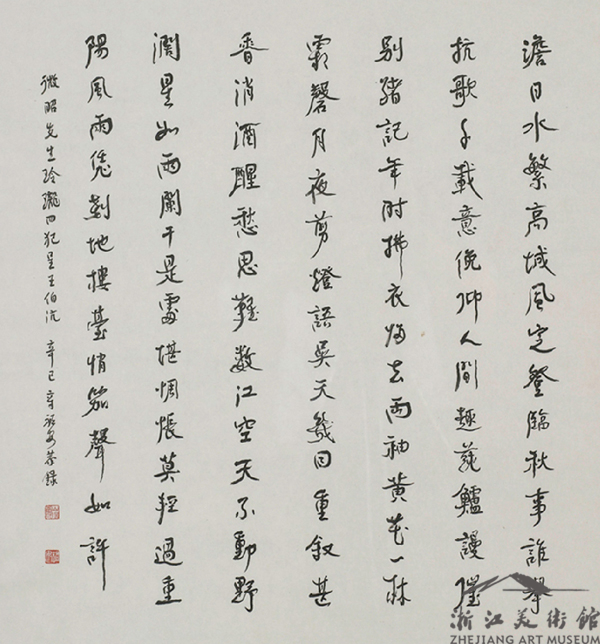 澹日水繁高城風定登臨秋事誰舉
抗歌千載意俛仰人間趣蓴鱸謾催
別緒記年時拂衣歸去兩袖黃花一林
霜磬月夜剪燈語吳天幾回重敘甚
香消酒醒愁思難數江空天不動野
濶星如雨闌干是處堪惆悵莫輕過重
陽風雨凭剗地樓臺悄笳聲如許
微昭先生玲瓏四犯呈王伯沆 辛巳章祖安恭錄
浙江美術館
ZHEJIANG ART MUSEUM